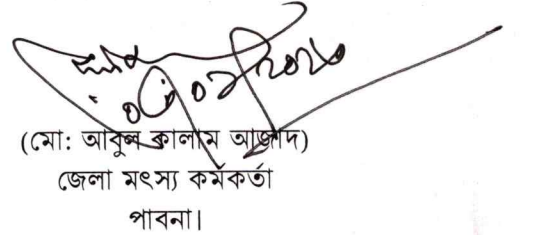 (মো: আবুল কালাম আজাদ)
জেলা মৎস্য কর্মকর্তা
পাবনা।